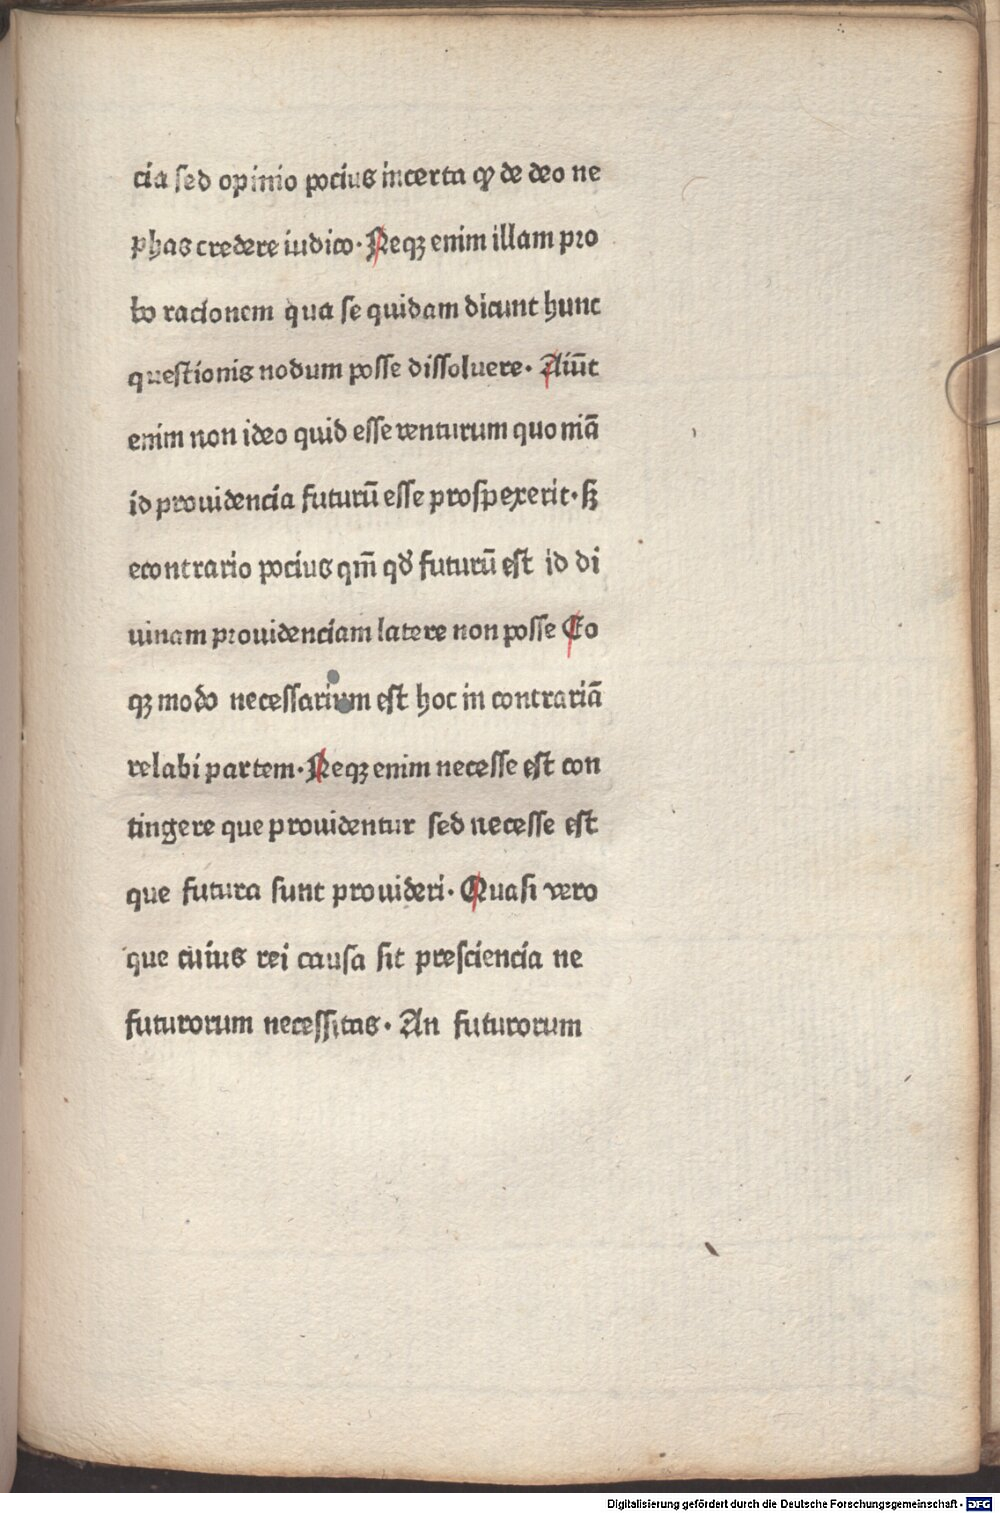 cia sed opinio pocius incerta qꝫ de deo ne
phas credere iudico· Neqꝫ enim illam pro
bo racionem qua se quidam dicunt hunc
questionis nodum posse dissoluere· Aiūt
enim non ideo quid esse venturum quoniā
id prouidencia futurū esse prospexerit· sꝫ
econtrario pocius qm̄ qd̕ futurū est id di
uinam prouidenciam latere non posse Eo
qꝫ modo necessarium est hoc in contrariā
relabi partem· Neqꝫ enim necesse est con
tingere que prouidentur sed necesse est
que futura sunt prouideri· Quasi vero
que cuius rei causa sit presciencia ne
futurorum necessitas· An futurorum
Digitalisierung gefördert durch die Deutsche Forschungsgemeinschaft - DFG